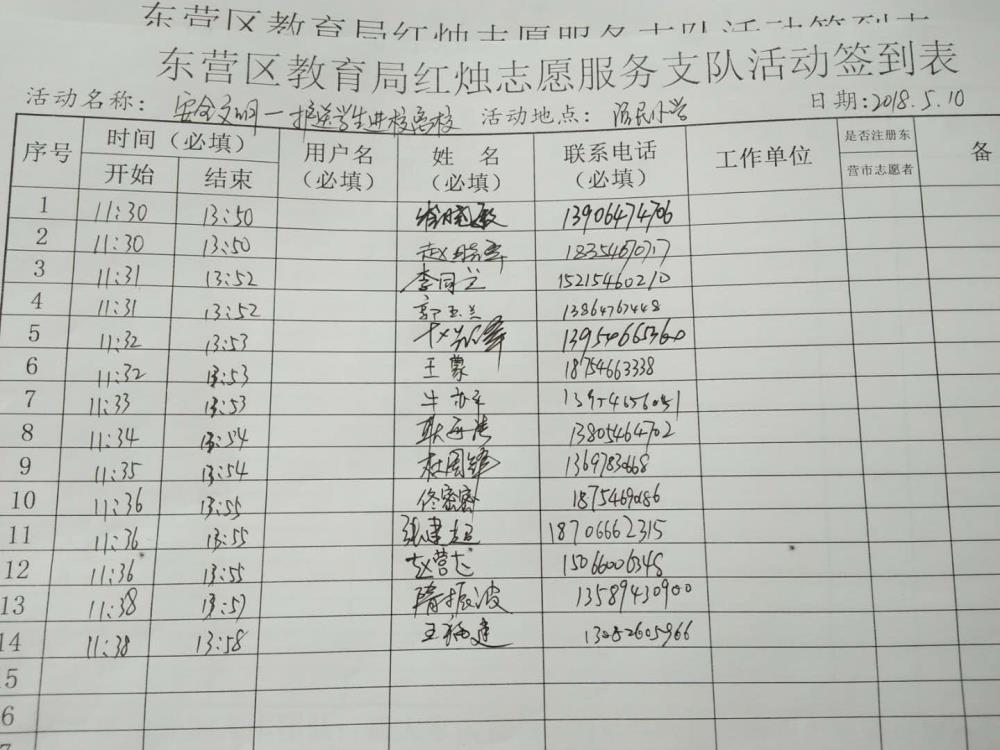 东营区教育局红烛志愿服务支队活动签到表
东营区教育局红烛志愿服务支队活动签到表
活动名称：安全文明一护送学生进校离校 活动地点：小学 日期：2018.5.10
序号 时间（必填） 开始 结束 用户名（必填） 姓名（必填） 联系电话（必填） 工作单位 是否注册东营市志愿者 备
1 11:30 13:50 13906474706
2 11:30 13:50 赵 18354670717
3 11:31 13:52 李同兰 15215460210
4 11:31 13:52 郭玉兰 13864767448
5 11:32 13:53
6 11:32 13:53 王蒙 18754663338
7 11:33 13:53 牛
8 11:34 13:54 耿 13805464702
9 11:35 13:54 杜国锋
10 11:36 13:55 佟密密
11 11:36 13:55 张建超 18706662315
12 11:36 13:55 赵营志 15066006348
13 11:38 13:57 隋振波 13589430900
14 11:38 13:58 王福建
15
6
7